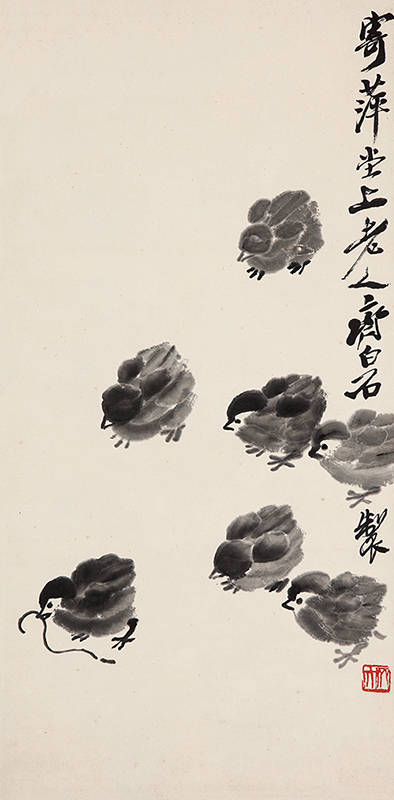 寄萍堂上老人齊白石製